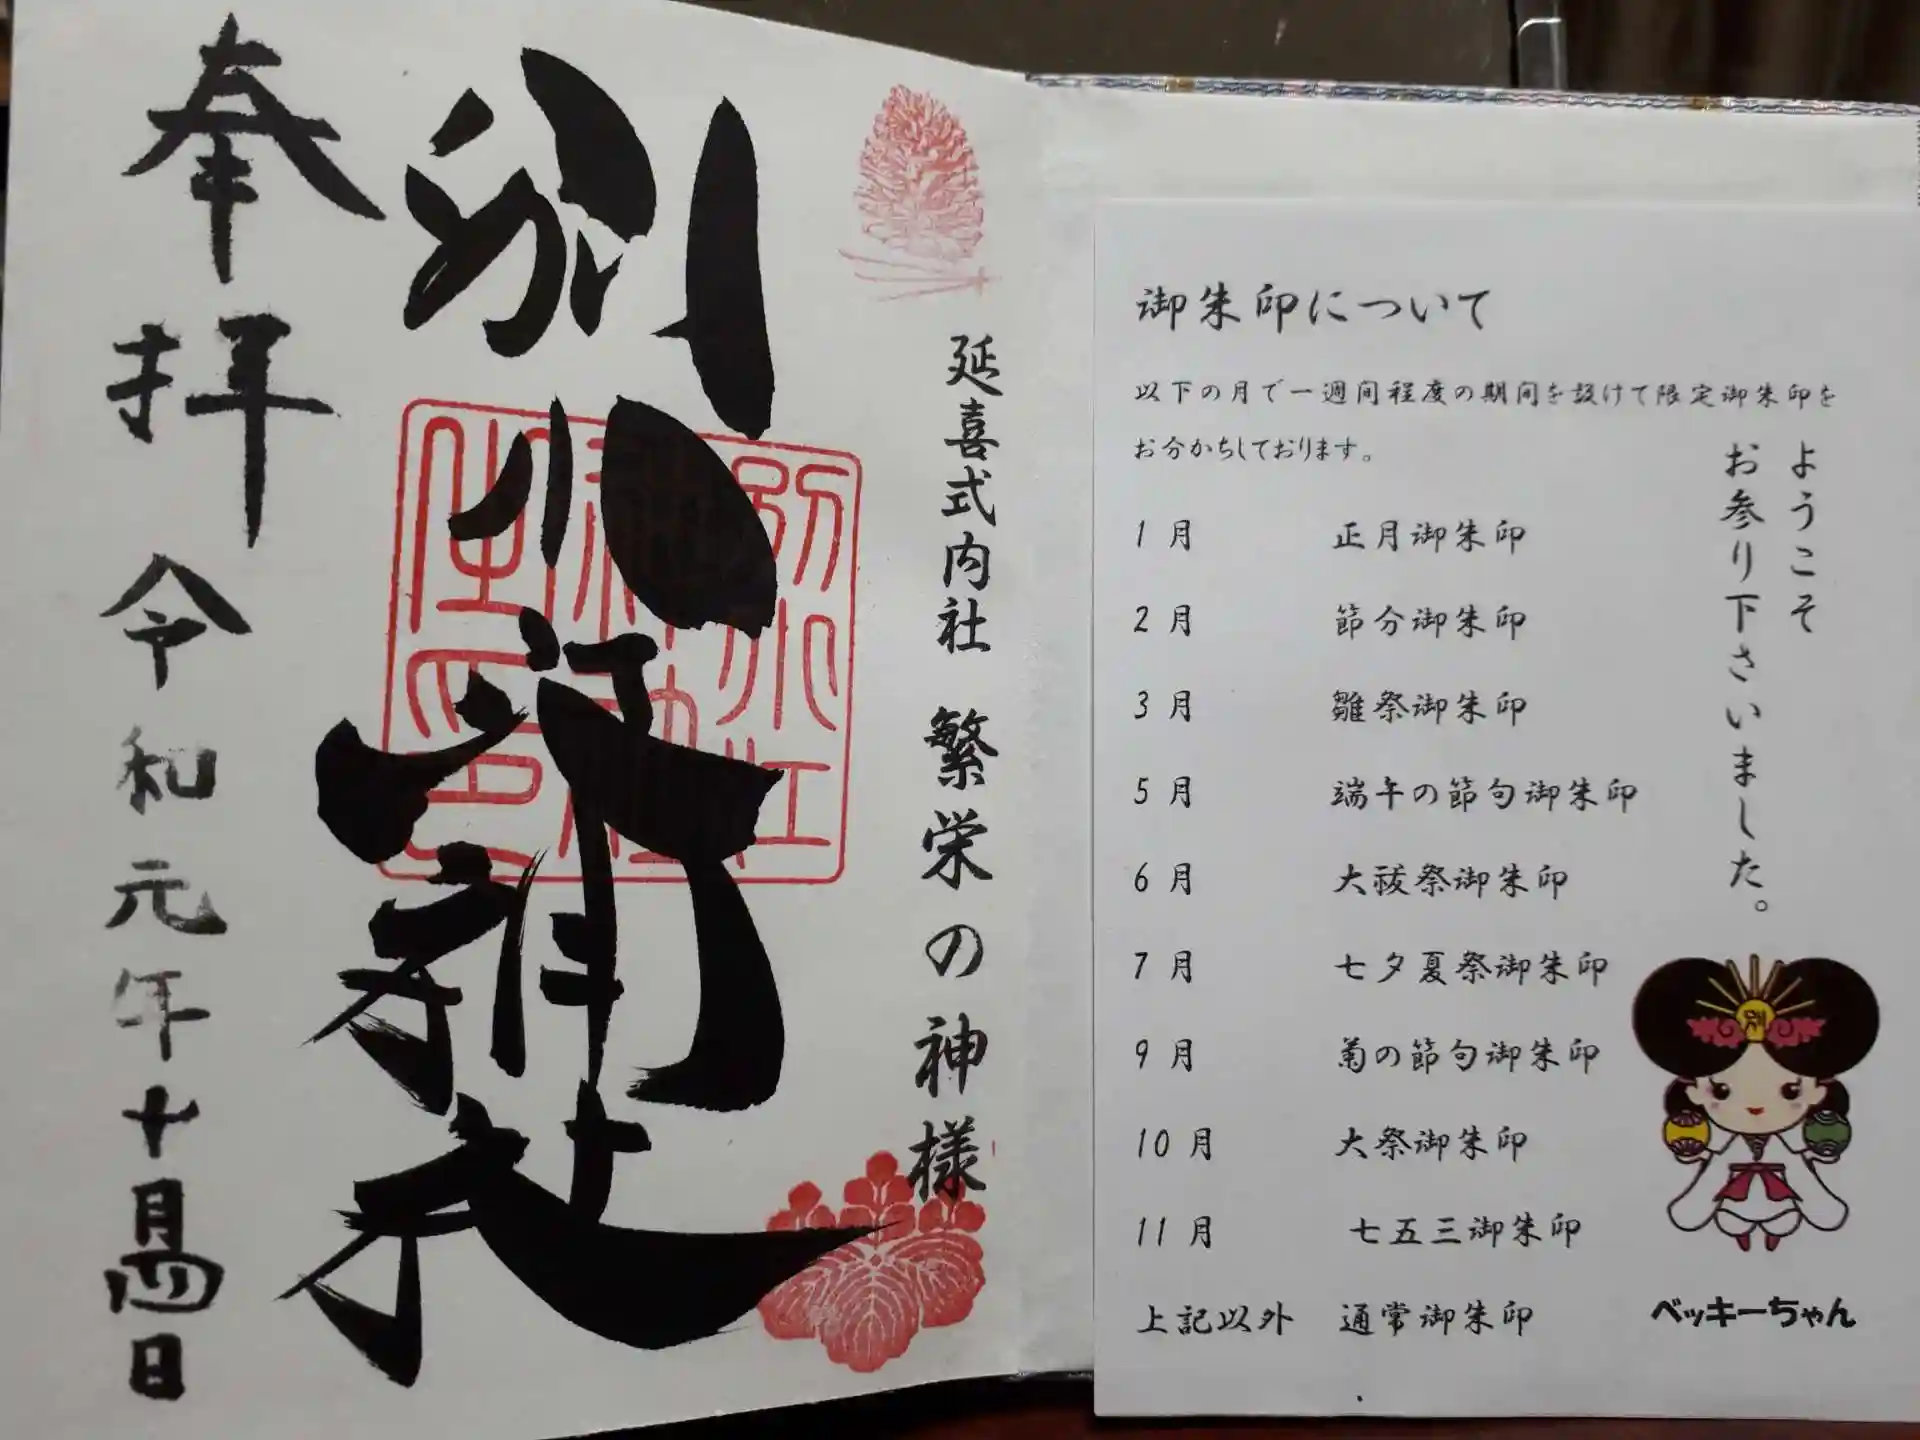 延喜式内社 繁栄の神様
別小江神社
奉拝 令和元年十月 四日
御朱印について
以下の月で一週間程度の期間を設けて限定御朱印を
お分かちしております。
1月 正月御朱印
2月 節分御朱印
3月 雛祭御朱印
5月 端午の節句御朱印
6月 大祓祭御朱印
7月 七夕夏祭御朱印
9月 菊の節句御朱印
10月 大祭御朱印
11月 七五三御朱印
上記以外 通常御朱印
ようこそ
お参り下さいました。
別
ベッキーちゃん